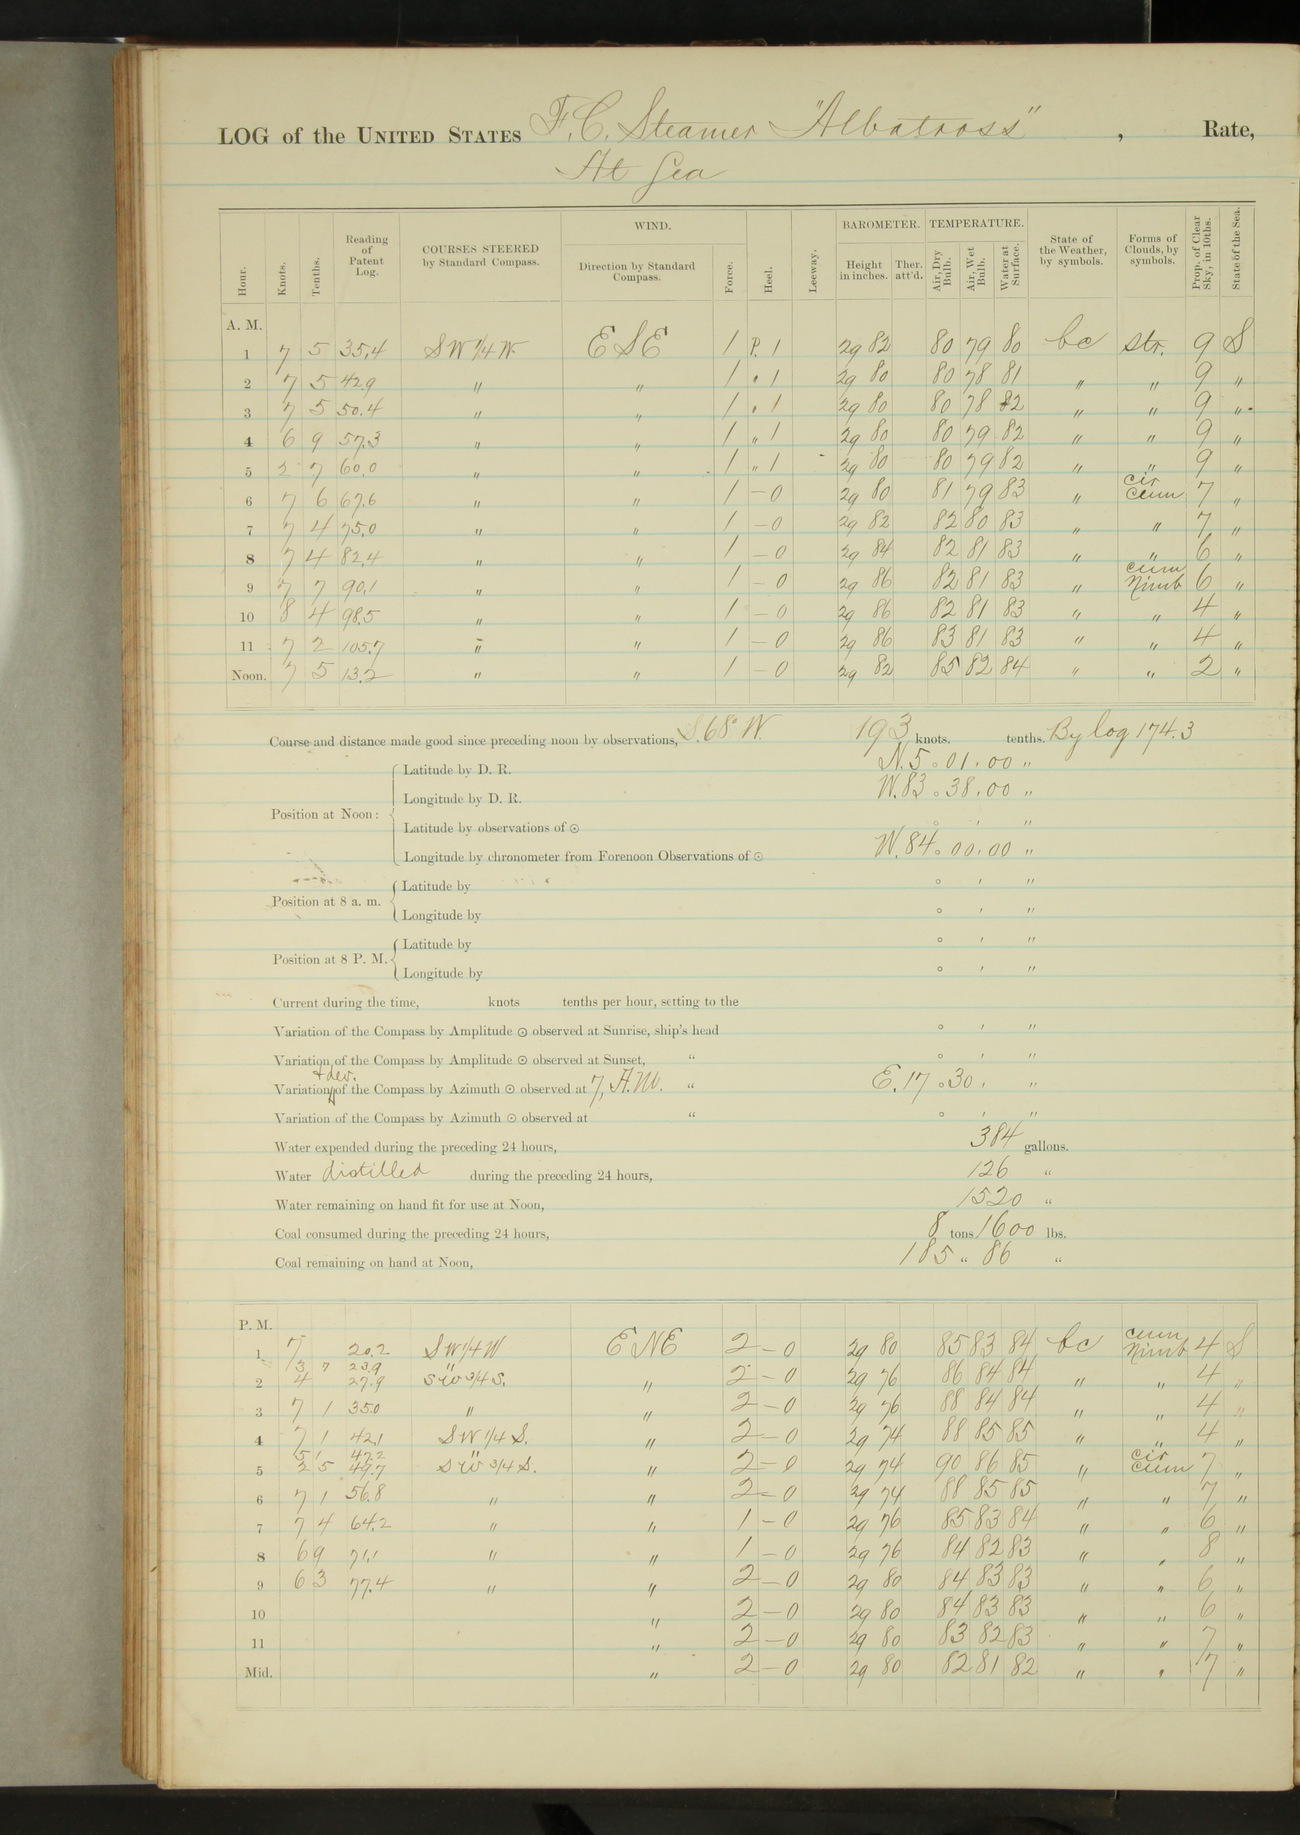 LOG of the UNITED STATES F.C. Steamer "Albatross" , Rate,
At Sea
Hour. Knots. Tenths. Reading of Patent Log. COURSES STEERED by Standard Compass. WIND. Direction by Standard Compass. Force. Heel. Leeway. BAROMETER. Height in inches. Ther. att'd. TEMPERATURE. Air, Dry Bulb. Air, Wet Bulb. Water at Surface. State of the Weather, by symbols. Forms of Clouds, by symbols. Prop. of Clear Sky, in 10ths. State of the Sea.
A. M.
1 7 5 35.4 SW 1/4 W. ESE 1 P. 1 29 82 80 79 80 bc str. 9 S
2 7 5 42.9 " " 1 " 1 29 80 80 78 81 " " 9 "
3 7 5 50.4 " " 1 " 1 29 80 80 78 82 " " 9 "
4 6 9 57.3 " " 1 " 1 29 80 80 79 82 " " 9 "
5 2 7 60.0 " " 1 " 1 29 80 80 79 82 " " 9 "
6 7 6 67.6 " " 1 - 0 29 80 81 79 83 " cir cum 7 "
7 7 4 75.0 " " 1 - 0 29 82 82 80 83 " " 7 "
8 7 4 82.4 " " 1 - 0 29 84 82 81 83 " " 6 "
9 7 7 90.1 " " 1 - 0 29 86 82 81 83 " cum Nimb 6 "
10 8 4 98.5 " " 1 - 0 29 86 82 81 83 " " 4 "
11 7 2 105.7 " " 1 - 0 29 86 83 81 83 " " 4 "
Noon. 7 5 13.2 " " 1 - 0 29 82 85 82 84 " " 2 "
Course and distance made good since preceding noon by observations, S. 68° W. 193 knots. tenths. By log 174.3
Position at Noon:
Latitude by D. R. N. 5 ° 01 ' 00 "
Longitude by D. R. W. 83 ° 38 ' 00 "
Latitude by observations of ☉ ° ' "
Longitude by chronometer from Forenoon Observations of ☉ W. 84 ° 00 ' 00 "
Position at 8 a. m.
Latitude by ° ' "
Longitude by ° ' "
Position at 8 P. M.
Latitude by ° ' "
Longitude by ° ' "
Current during the time, knots tenths per hour, setting to the
Variation of the Compass by Amplitude ☉ observed at Sunrise, ship's head ° ' "
Variation of the Compass by Amplitude ☉ observed at Sunset, " ° ' "
Variation + dev. of the Compass by Azimuth ☉ observed at 7, A.M. " E. 17 ° 30 ' "
Variation of the Compass by Azimuth ☉ observed at " ° ' "
Water expended during the preceding 24 hours, 384 gallons.
Water distilled during the preceding 24 hours, 126 "
Water remaining on hand fit for use at Noon, 1520 "
Coal consumed during the preceding 24 hours, 8 tons 1600 lbs.
Coal remaining on hand at Noon, 185 " 86 "
P. M.
1 7 20.2 SW 1/4 W ENE 2 - 0 29 80 85 83 84 bc cum Nimb 4 S
3 7 23.9 "
2 4 27.9 SW 3/4 S. " 2 - 0 29 76 86 84 84 " " 4 "
3 7 1 35.0 " " 2 - 0 29 76 88 84 84 " " 4 "
4 7 1 42.1 SW 1/4 S. " 2 - 0 29 74 88 85 85 " " 4 "
5 1 47.2 "
5 2 5 49.7 SW 3/4 S. " 2 - 0 29 74 90 86 85 " cir cum 7 "
6 7 1 56.8 " " 2 - 0 29 74 88 85 85 " " 7 "
7 7 4 64.2 " " 1 - 0 29 76 85 83 84 " " 6 "
8 6 9 71.1 " " 1 - 0 29 76 84 82 83 " " 8 "
9 6 3 77.4 " " 2 - 0 29 80 84 83 83 " " 6 "
10 " 2 - 0 29 80 84 83 83 " " 6 "
11 " 2 - 0 29 80 83 82 83 " " 7 "
Mid. " 2 - 0 29 80 82 81 82 " " 7 "